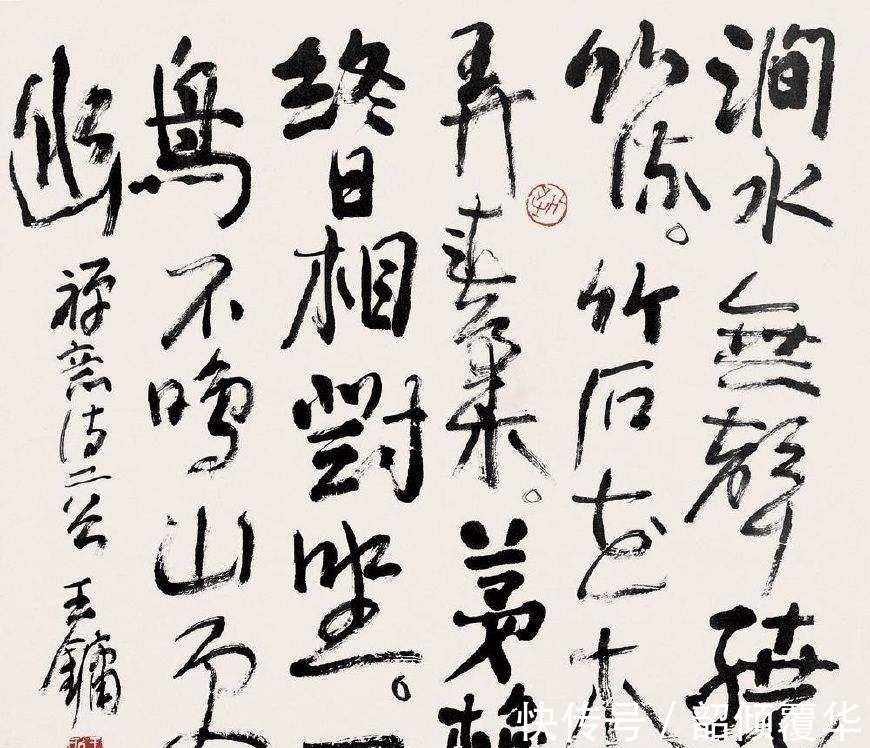 澗水無聲繞
竹流。竹石花木
弄春柔。茅檐
終日相對坐。一
鳥不鳴山更
幽
禪意詩二 王鏞
快传号 / 韶倾覆华